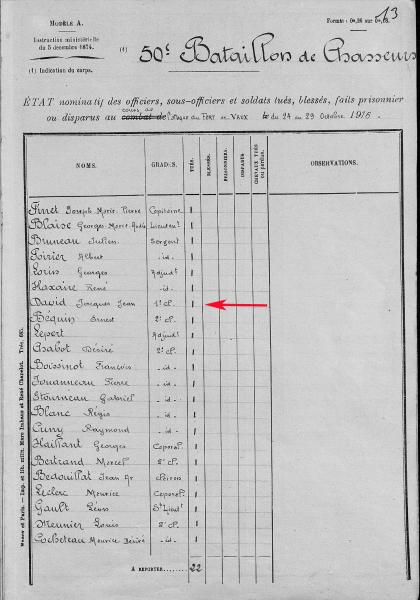 MODÈLE A.
Format : 0m,26 sur 0m,38.
13
Instruction ministérielle
du 5 décembre 1874.
(1) 50e Bataillon de Chasseurs
(1) Indication du corps.
ÉTAT nominatif des officiers, sous-officiers et soldats tués, blessés, faits prisonnier
ou disparus au combat de cours de l'attaque du FORT de VAUX le du 24 au 29 Octobre 1916.
NOMS. GRADES. TUÉS. BLESSÉS. PRISONNIERS. DISPARUS CHEVAUX TUÉS ou perdus. OBSERVATIONS.
Finet Joseph Marie Pierre Capitaine 1
Blaise Georges Marie Lieutent 1
Bruneau Julien Sergent 1
Poirier Albert - id - 1
Loris Georges Adjudt 1
Haxaire René - id - 1
David Jacques Jean 1e cl. 1
Béquin Ernest 2e cl. 1
Lepert Adjudt 1
Chabot Désiré 2e cl. 1
Boissinot François - id - 1
Jouanneau Pierre - id - 1
Étourneau Gabriel - id - 1
Blanc Régis - id - 1
Cuny Raymond - id - 1
Haillant Georges Caporal 1
Bertrand Marcel 2e cl. 1
Bedouillat Jean Clairon 1
Leclerc Maurice Caporal 1
Gault Léon S/Lieutt 1
Meunier Louis 2e cl. 1
Cocheteau Maurice Désiré - id - 1
A REPORTER....... 22